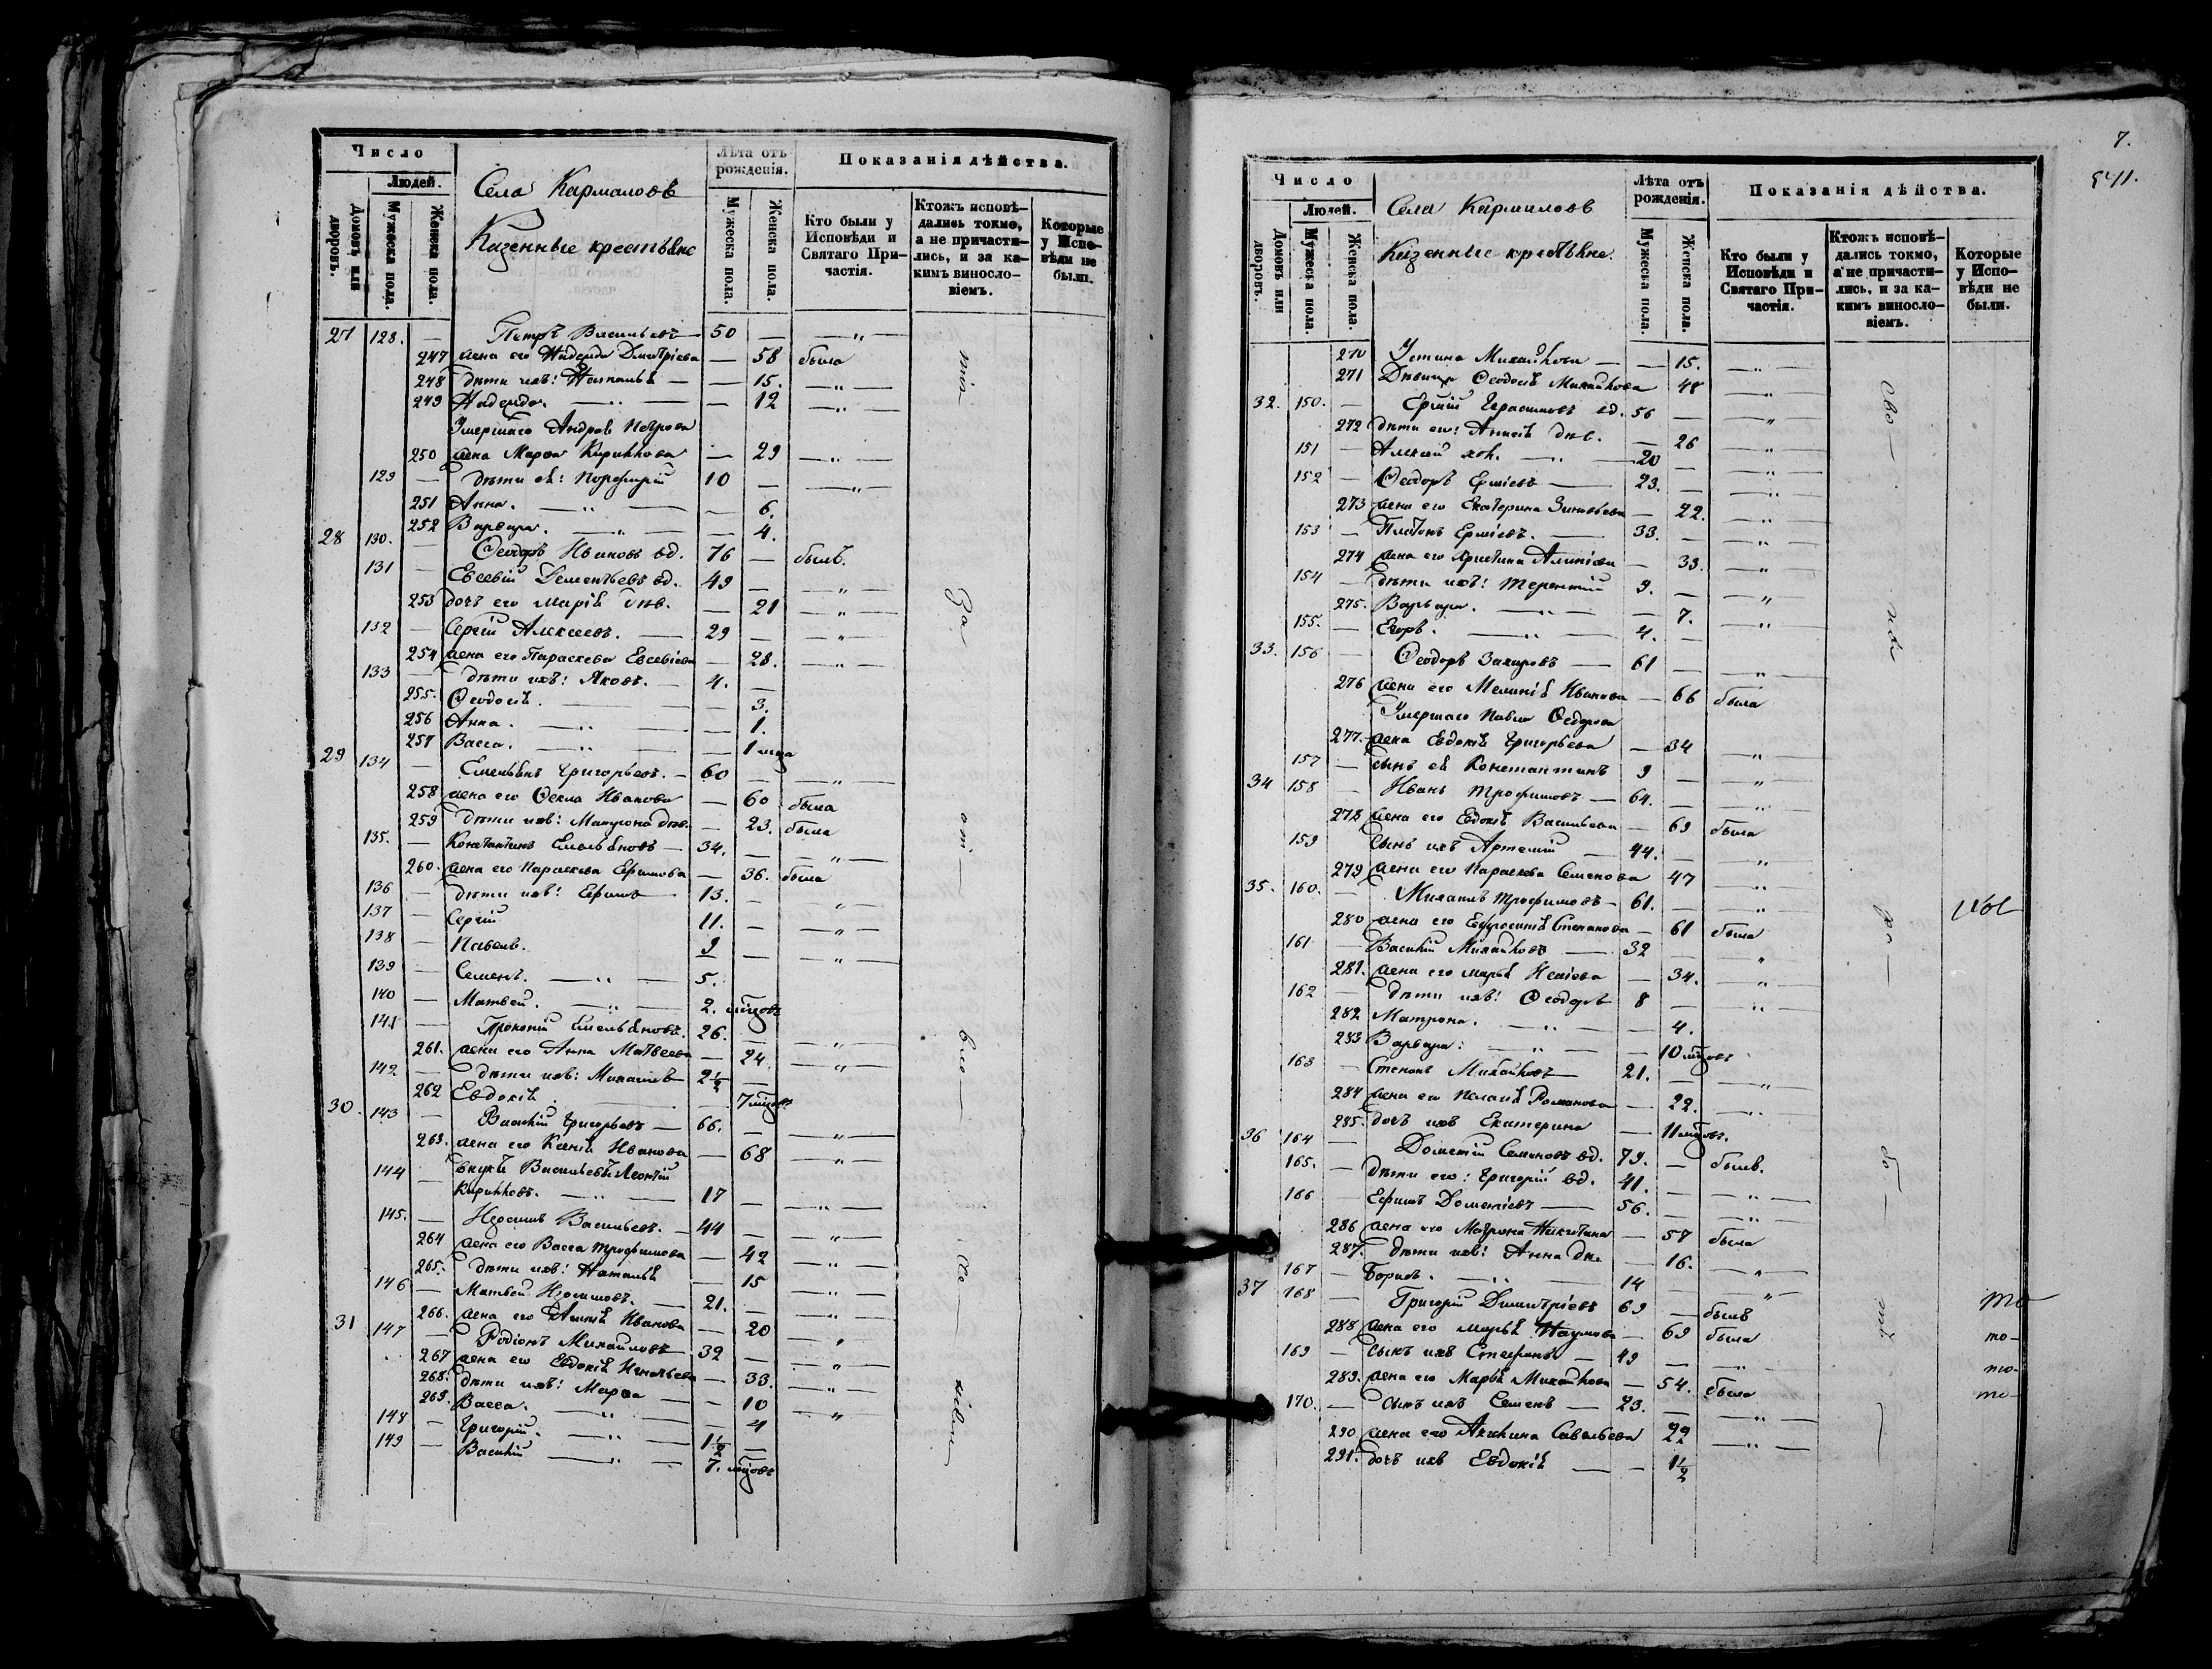 Число
Людей.
Домовъ или дворовъ.
Мужеска пола.
Женска пола.
Села Кармаловъ
Казенные крестьяне
Лѣта отъ рожденія.
Мужеска пола.
Женска пола.
Показанія дѣйства.
Кто были у Исповѣди и Святаго Причастія.
Ктожъ исповѣдались токмо, а не причастились, и за какимъ винословіемъ.
Которые у Исповѣди не были.
27 128. — Петръ Васильевъ — 50 — — „ —
247 жена его Надежда Димитріева — 58 была
248 дѣти ихъ: Наталья — — 15. — „ —
249 Надежда. — „ — — 12 — „ —
Умершаго Андрея Петрова
250 жена Марфа Кириллова — 29 — „ —
129 — дѣти ея: Порфирій 10 — — „ —
251 Анна. — „ — — 6.
252 Варвара. — „ — — 4.
28 130. — Ѳеодоръ Ивановъ вд. 76 — былъ.
131 — Евсевій Дементьевъ вд. 49 — — „ —
253 дочь его Марія дѣв. — 21 — „ —
132 — Сергій Алексеевъ. — 29 — — „ —
254 жена его Параскева Евсевіева — 28. — „ —
133 — дѣти ихъ: Яковъ. — 4. —
255. Ѳеодосія. — — 3.
256 Анна. — „ — — 1.
257 Васса. — „ — — 1 мца
29 134 — Емельянъ Григорьевъ. — 60 — — „ —
258 жена его Ѳекла Иванова — 60 была
259 дѣти ихъ: Матрона дѣв. — 23. была
135. — Константинъ Емельяновъ — 34. — — „ —
260. жена его Параскева Ефимова — 36. была
136 — дѣти ихъ: Ефимъ — 13. — — „ —
137 — Сергій 11. — — „ —
138 — Павелъ. 9 — — „ —
139 — Семенъ. — „ — 5.
140 — Матвей. — „ — 2. мцовъ
141 — Прокопій Емельяновъ. 26. — — „ —
261. жена его Анна Матвеева — 24 — „ —
142 — дѣти ихъ: Михаилъ — 2½ —
262 Евдокія. — — 7 мцовъ
30. 143 — Василій Григорьевъ — 66. — — „ —
263. жена его Ксенія Иванова — 68 — „ —
144 — внукъ Васильевъ Леонтій
Кирилловъ. — „ — 17 — — „ —
145. — Изосимъ Васильевъ. — 44 — — „ —
264 жена его Васса Трофимова — 42 — „ —
265. дѣти ихъ: Наталья — 15 — „ —
146 — Матвей Изосимовъ. — 21. — — „ —
266. жена его Иванова — 20 — „ —
31 147 — Родіонъ Михайловъ — 32 — — „ —
267 жена его Евдокія Игнатьева — 33. — „ —
268. дѣти ихъ: Марфа — — 10 — „ —
269. Васса. — „ — — 4
148 — Григорій. — „ — 1½ —
149 — Василій — „ — 7. мцовъ
7.
541.
Число
Людей.
Домовъ или дворовъ.
Мужеска пола.
Женска пола.
Села Кармаловъ
Казенные крестьяне.
Лѣта отъ рожденія.
Мужеска пола.
Женска пола.
Показанія дѣйства.
Кто были у Исповѣди и Святаго Причастія.
Ктожъ исповѣдались токмо, а не причастились, и за какимъ винословіемъ.
Которые у Исповѣди не были.
270 Устина Михайлова — — 15. — „ —
271 Дѣвица Ѳеодосія Михайлова 48 — „ —
32. 150. — Ермій Герасимовъ вд. 56 — — „ —
272 дѣти его: дѣв. — 26 — „ —
151 — Алексій хол. — „ — 20 — „ —
152 — Ѳеодоръ Ерміевъ — 23. — — „ —
273 жена его Екатерина Зиновьева — 22. — „ —
153 — Платонъ Ерміевъ. — 33. — — „ —
274 жена его Христина — 33. — „ —
154 — дѣти ихъ: Терентій 9. — — „ —
275. Варвара. — „ — — 7. — „ —
155. — Егоръ. — „ — 4. —
33. 156 — Ѳеодоръ Захаровъ — 61 — — „ —
276 жена его Меланія Иванова — 66 была
Умершаго Павла Ѳедорова
277. жена Евдокія Григорьева — 34 — „ —
157 — сынъ ея Константинъ 9 — — „ —
34 158 — Иванъ Трофимовъ — 64. — — „ —
278 жена его Евдокія Васильева — 69 была
159 сынъ ихъ Артемій — 44. — — „ —
279 жена его Параскева Семенова 47 — „ —
35. 160. — Михаилъ Трофимовъ — 61. — — „ —
280 жена его Евфросинія Степанова — 61 была
161 — Василій Михайловъ — 32 — — „ —
281. жена его Марья — 34. — „ —
162 — дѣти ихъ: Ѳеодоръ 8 — — „ —
282 Матрона. — „ — — 4.
283 Варвара: — „ — — 10 мцовъ
163 — Степанъ Михайловъ — 21. — — „ —
284 жена его Пелагія Романова — 22. — „ —
285. дочь ихъ Екатерина — 11 мцовъ.
36 164 — Дометій Семеновъ вд. 79. — былъ.
165. — дѣти его: Григорій вд. 41. — — „ —
166 — Ефимъ Дометіевъ — 56. — — „ —
286 жена его Матрона Никитина — 57 была
287. дѣти ихъ: Анна дѣ. — 16. — „ —
167 — Борисъ. — „ — 14 — — „ —
37 168 — Григорій Димитріевъ 69 — былъ
288 жена его Марья Наумова — 69 была
169 — сынъ ихъ Стефанъ — 49 — — „ —
289. жена его Марья Михайлова — 54. была
170. — сынъ ихъ Семенъ — 23. — — „ —
290 жена его Савельева 22 — „ —
291. дочь ихъ Евдокія — — 1½